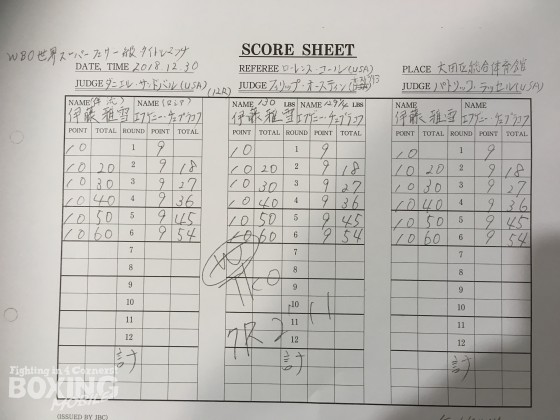 WBO世界スーパーフェザー級タイトルマッチ
SCORE SHEET
DATE, TIME 2018.12.30
REFEREE ローレンス・コール(USA)
PLACE 大田区総合体育館
JUDGE ダニエル・サンドバル(USA)
(12R)
JUDGE フィリップ・オースティン
JUDGE パトリック・ラッセル(USA)
NAME NAME
130 LBS 129 1/4 LBS
伊藤雅雪 エフゲニー・チュプラコフ
伊藤雅雪 エフゲニー・チュプラコフ
伊藤雅雪 エフゲニー・チュプラコフ
POINT TOTAL ROUND POINT TOTAL POINT TOTAL ROUND POINT TOTAL POINT TOTAL ROUND POINT TOTAL
10 1 9 10 1 9 10 1 9
10 20 2 9 18 10 20 2 9 18 10 20 2 9 18
10 30 3 9 27 10 30 3 9 27 10 30 3 9 27
10 40 4 9 36 10 40 4 9 36 10 40 4 9 36
10 50 5 9 45 10 50 5 9 45 10 50 5 9 45
10 60 6 9 54 10 60 6 9 54 10 60 6 9 54
7 7 7
8 8 8
TKO
9 9 9
10 10 10
7R 2'11
11 11 11
12 12 12
計 計 計
Fighting in 4 Corners!
BOXING
MOBILE
(ISSUED BY JBC)